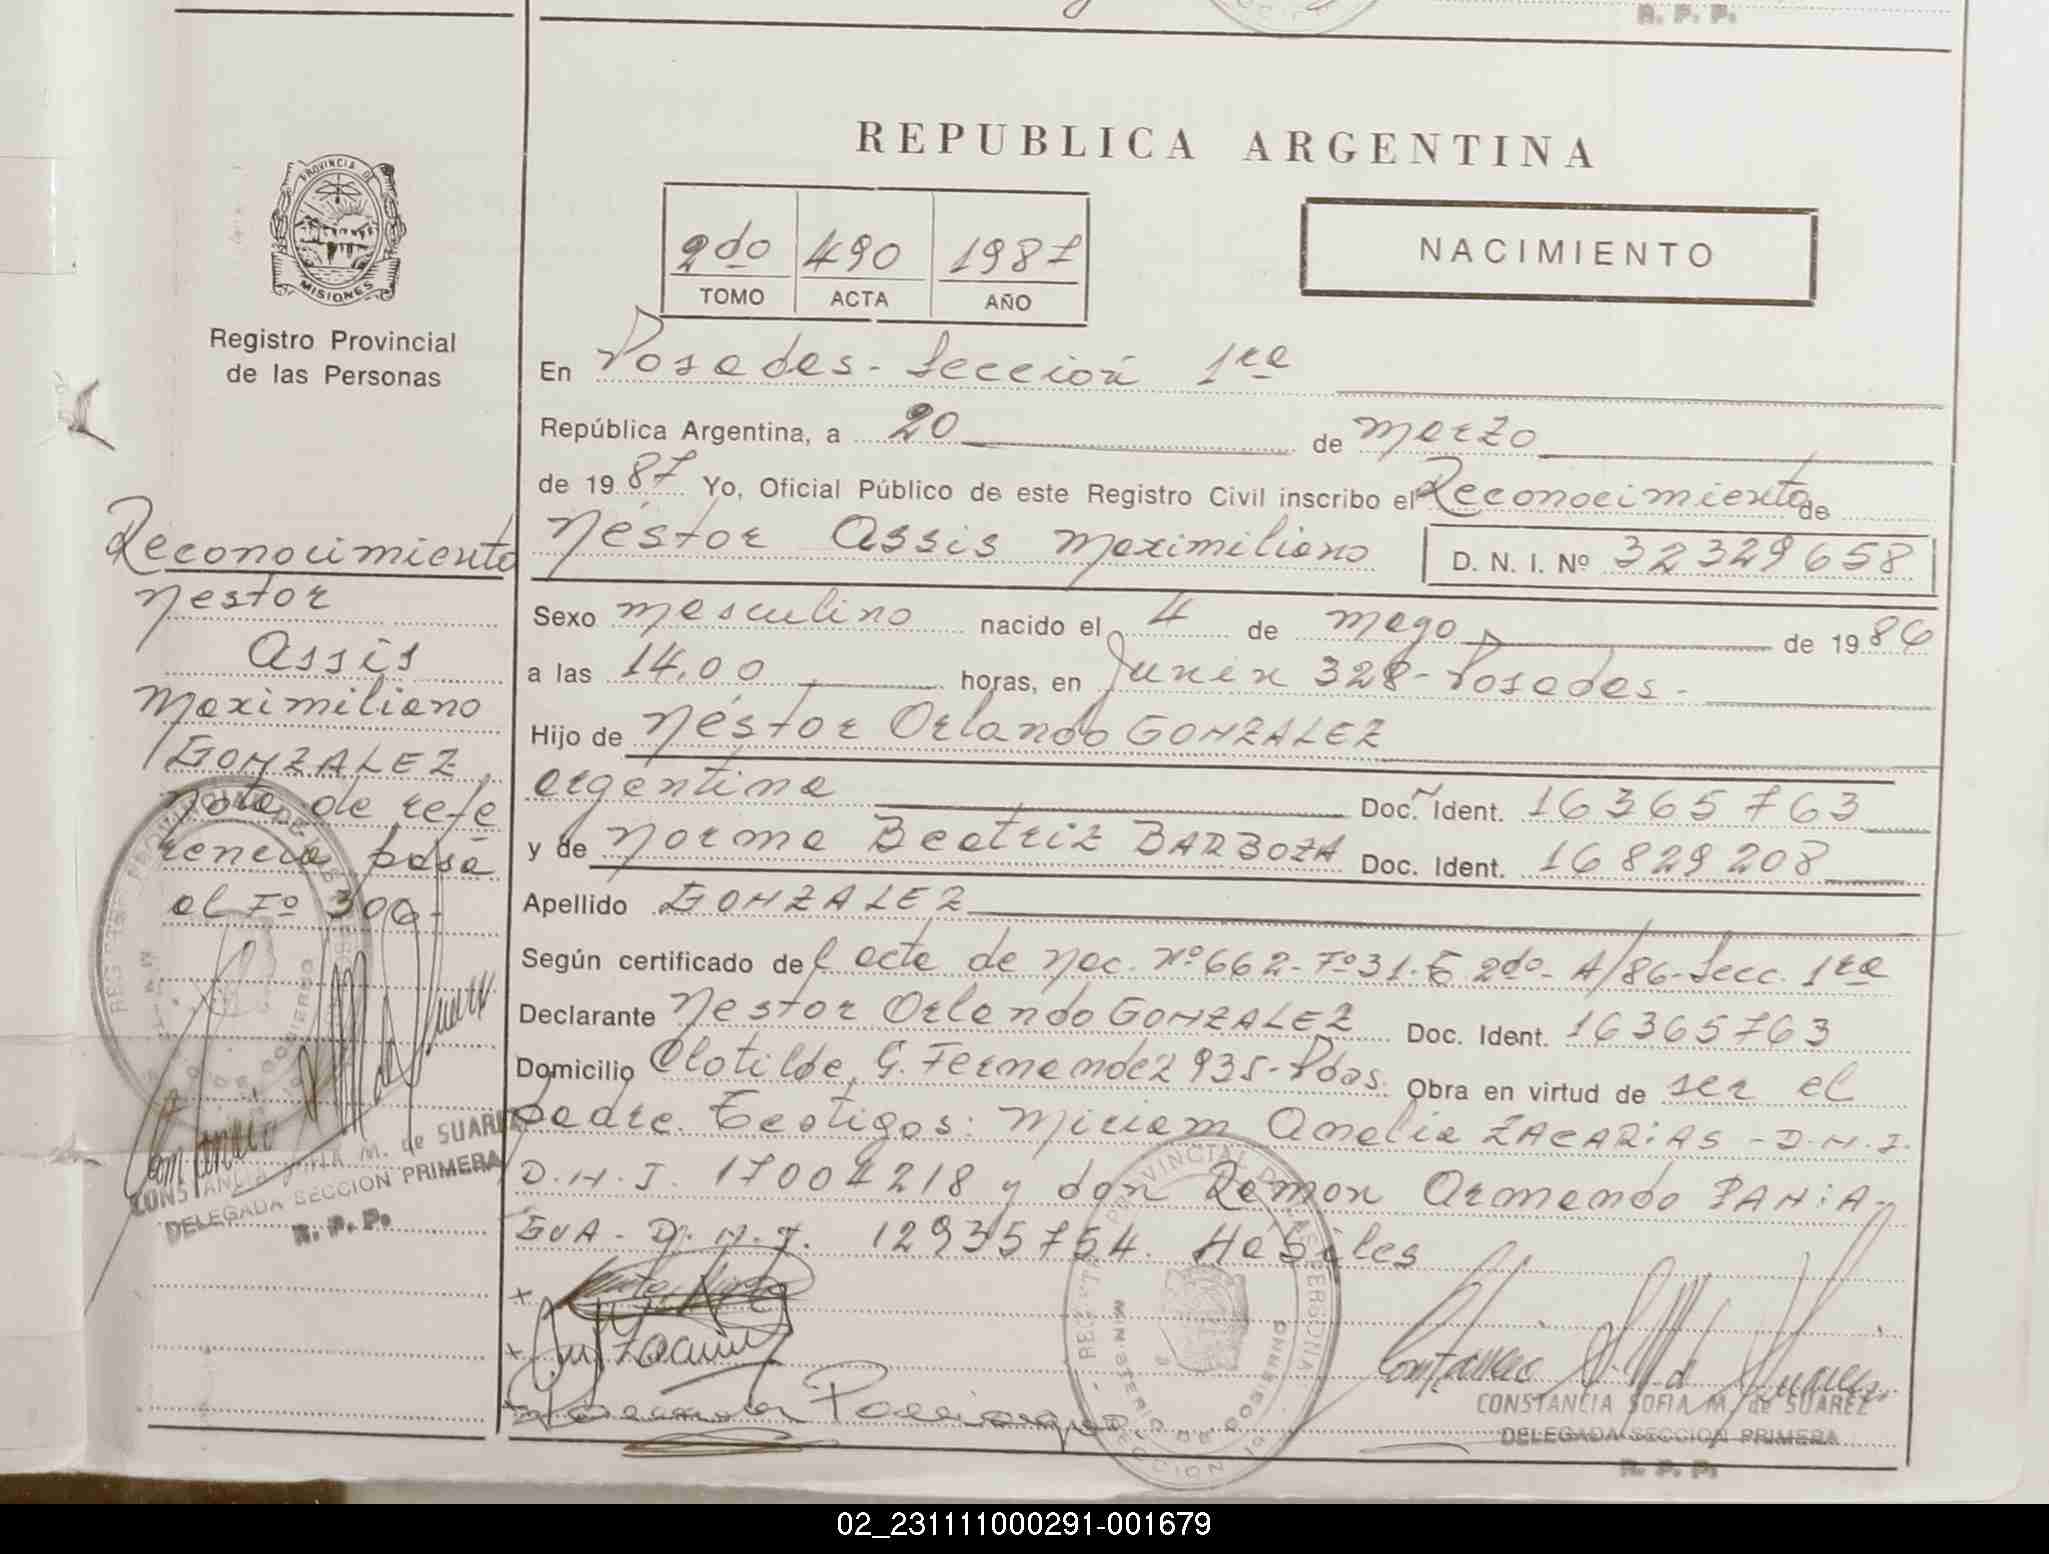 R. P. P.
REPUBLICA ARGENTINA
PROVINCIA D
MISIONES
Registro Provincial
de las Personas
2do 490 1987
TOMO ACTA AÑO
NACIMIENTO
En Posadas - Sección 1ra
República Argentina, a 20 de marzo
de 1987 Yo, Oficial Público de este Registro Civil inscribo el Reconocimiento de
Néstor Assis Maximiliano D. N. I. Nº 32329658
Sexo masculino nacido el 4 de mayo de 1986
a las 14,00 horas, en Junín 328 - Posadas -
Hijo de Néstor Orlando GONZALEZ
argentina Doc. Ident. 16365763
y de Norma Beatriz BARBOZA Doc. Ident. 16829208
Apellido GONZALEZ
Según certificado del acta de nac. Nº 662 - Fº 31 - 2do - A/86 - Secc. 1ra
Declarante Nestor Orlando GONZALEZ Doc. Ident. 16365763
Domicilio Clotilde G. Fernandez 935 - Pdas. Obra en virtud de ser el
padre. Testigos: Miriam Amelia ZACARIAS - D.N.I.
D.N.I. 17004218 y don Ramon Armando PANIA-
GUA - D.N.I. 12935754. Hábiles
Reconocimiento
Nestor
Assis
Maximiliano
GONZALEZ
Nota de refe
rencia pasa
al Fº 300 -
CONSTANCIA SOFIA M. de SUAREZ
DELEGADA SECCION PRIMERA
R. P. P.
MINISTERIO DE GOBIERNO
CONSTANCIA SOFIA M. de SUAREZ
DELEGADA SECCION PRIMERA
R. P. P.
02_231111000291-001679